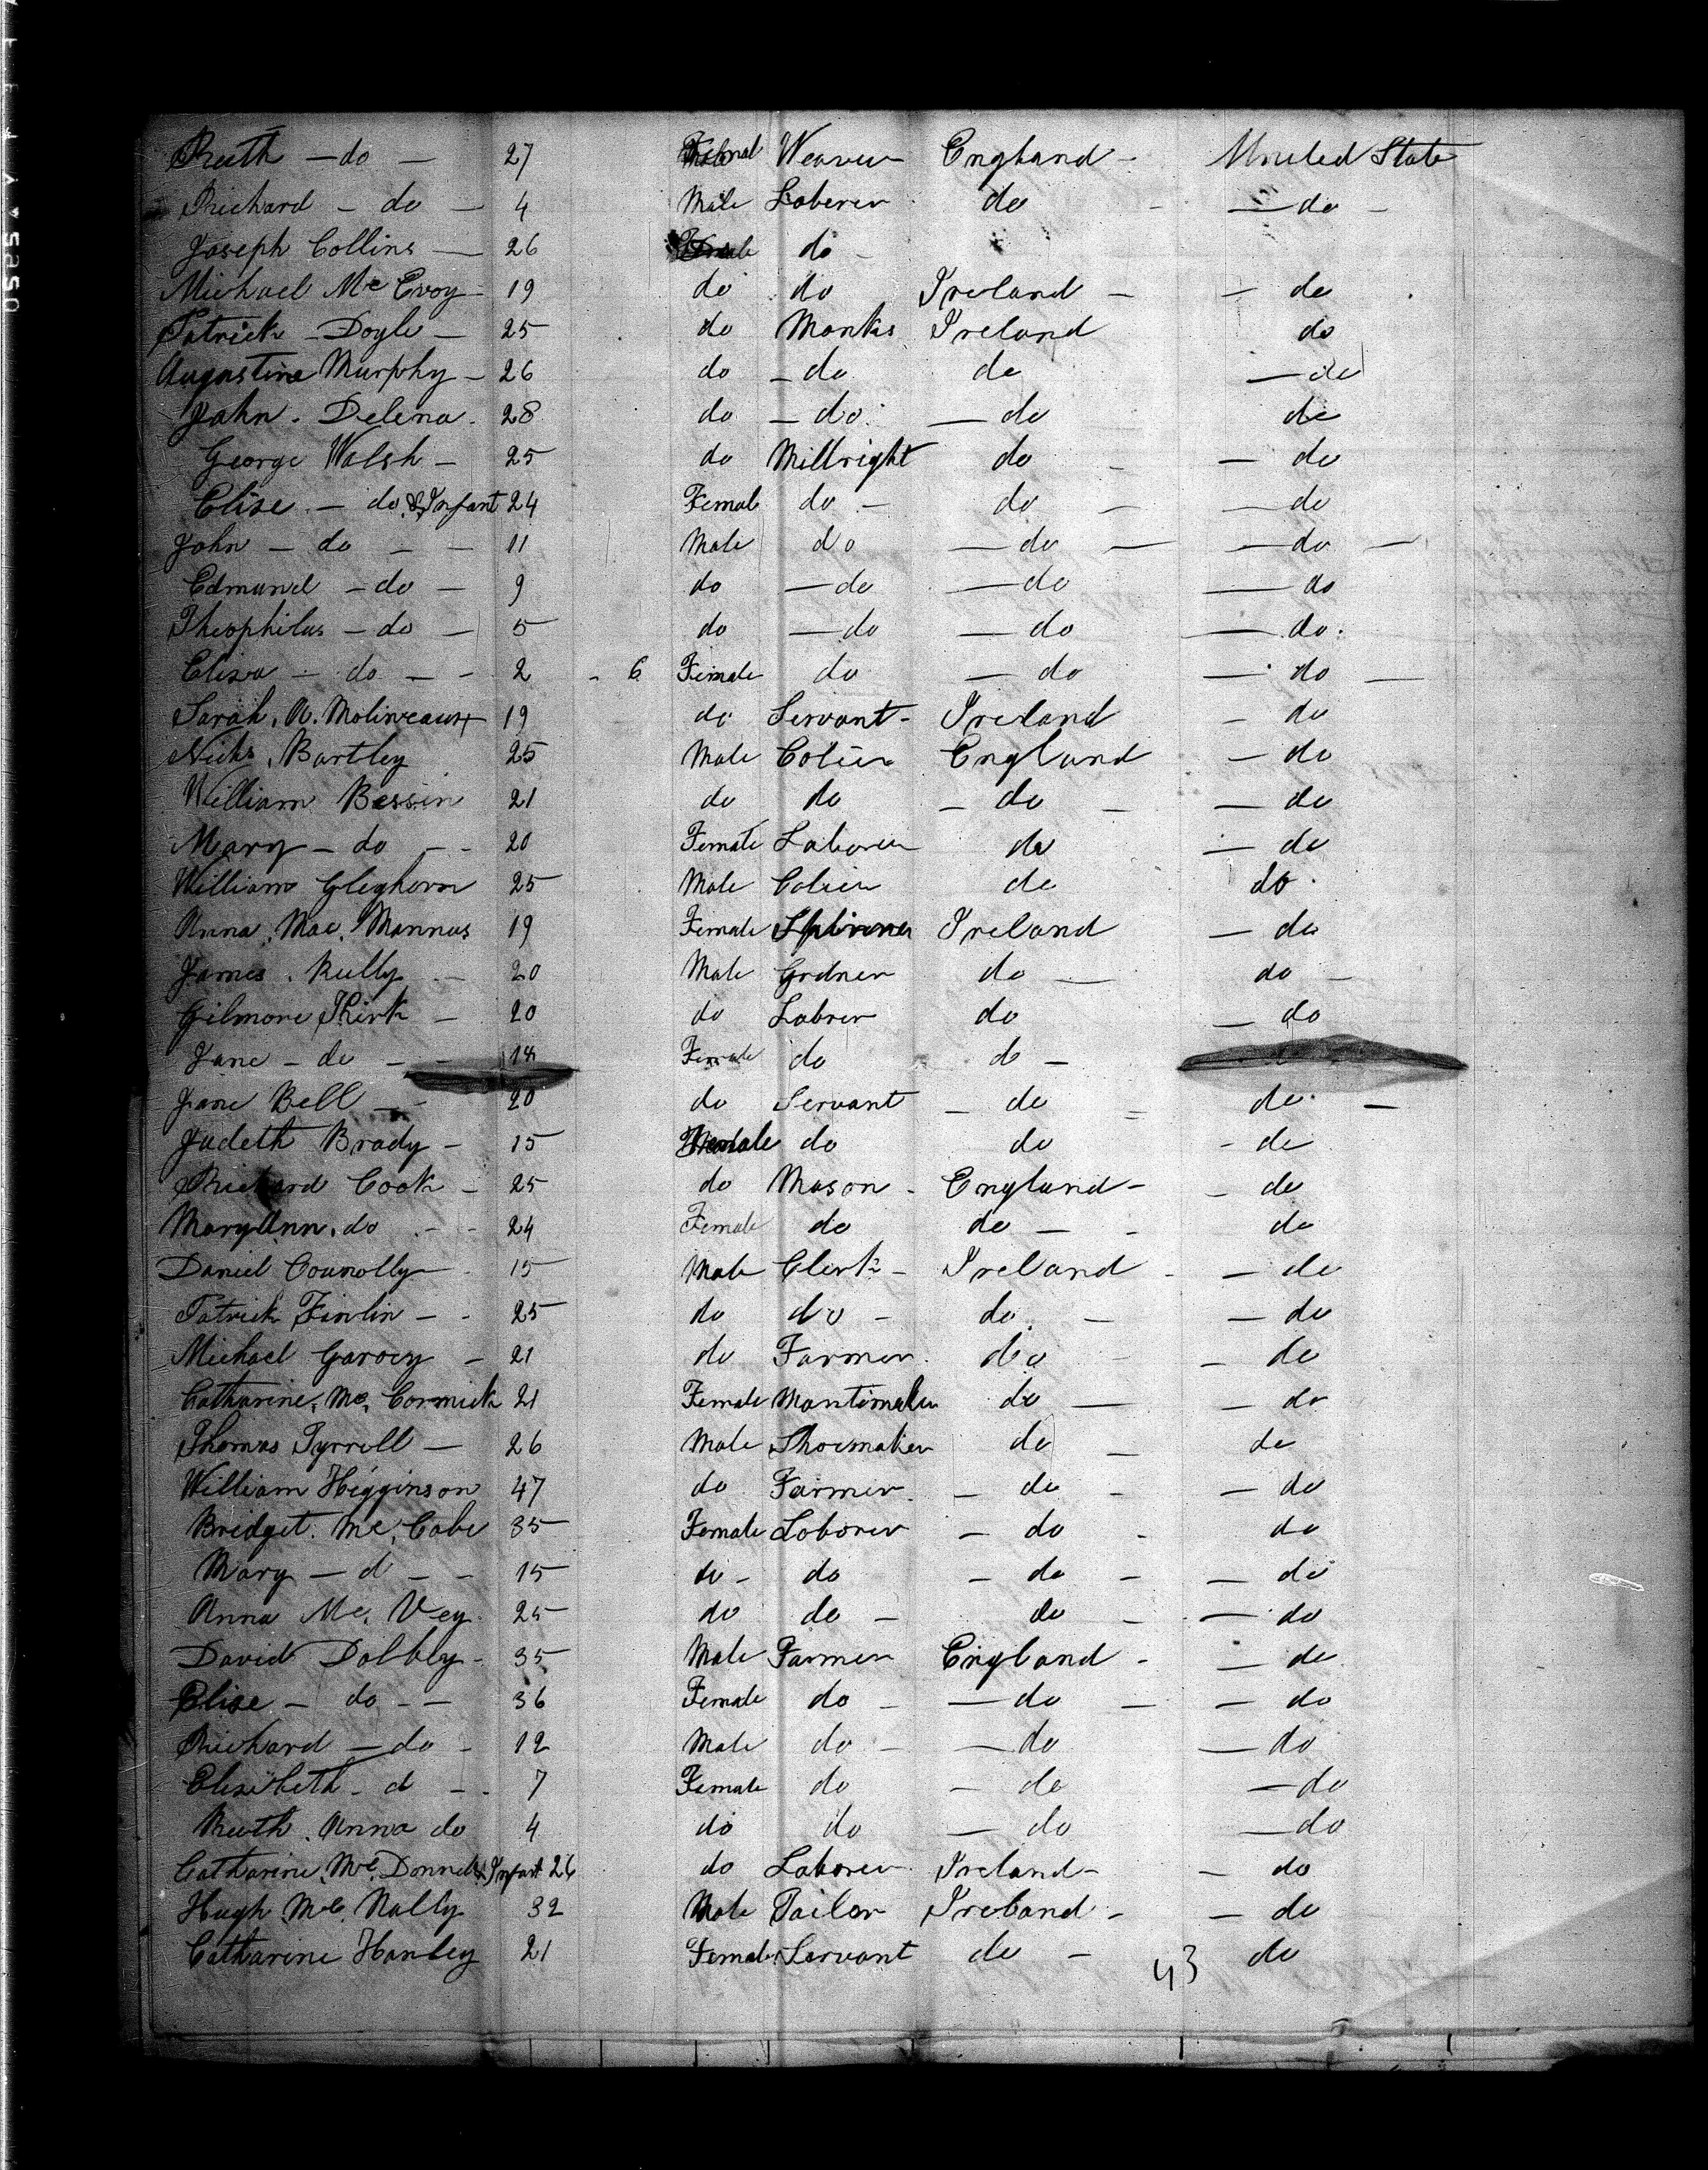 Ruth - do - 27 Female Weaver England - United State
Richard - do - 4 Male Laberer do - do -
Joseph Collins - 26 do -
Michael Mc Evoy - 19 do do Ireland - - do
Patrick - Doyle - 25 do Monks Ireland do
Augustine Murphy - 26 do - do do - do
John . Delena . 28 do - do - do do
George Walsh - 25 do Millright do - - do
Elise - do & Infant 24 Femal do - do - - do
John - do - - 11 Male do - do - - do -
Edmund - do - 9 do - do - do - do
Theophilus - do - 5 do - do - do - do .
Elisa - do - - 2 - 6 Female do - do - do -
Sarah . A . Molineaux 19 do Servant - Ireland - do
Nichs . Bartley 25 Male Colier England - do
William Bessin 21 do do - do - - do
Mary - do - - 20 Female Laborer do - do
William Gleghorn 25 Male Colier do do
Anna . Mac . Mannus 19 Female Ireland - do
James . Rielly . - 20 Male Grdner do - do -
Gilmore Kirk - 20 do Labrer do - do
Jane - do - - 18 Female do do -
Jane Bell - - 20 do Servant - do = do -
Judeth Brady - 15 do do - do
Richard Cook - 25 do Mason - England - - do
Mary Ann . do . - - 24 Female do do - - do
Daniel Connolly - 15 Male Clerk - Ireland - - do
Patrick Finlin - - 25 do do - do - - do
Michael Garvey - 21 do Farmer do - - do
Catharine . Mc . Cormick 21 Female Mantimaker do - - do
Thomas Tyrrell - 26 Male Shoemaker do - do
William Higginson 47 do Farmer - do - - do
Bridget . Mc . Cabe 35 Female Loborer - do - do
Mary - d - - 15 do - do - do - - do
Anna Mc . Vey 25 do do - do - - do
David Dolbly - 35 Male Farmer England - - do
Elise - do - - 36 Female do - - do - - do
Richard - do - 12 Male do - - do - do
Elisibeth - d - - 7 Female do - do - do
Ruth . Anna do 4 do do - do - do
Catharine . Mc . Donnel & Infant 26 do Laborer Ireland - - do
Hugh Mc Nally 32 Male Tailor Ireland - - do
Catharine Hanley 21 Female Servant do - do
43